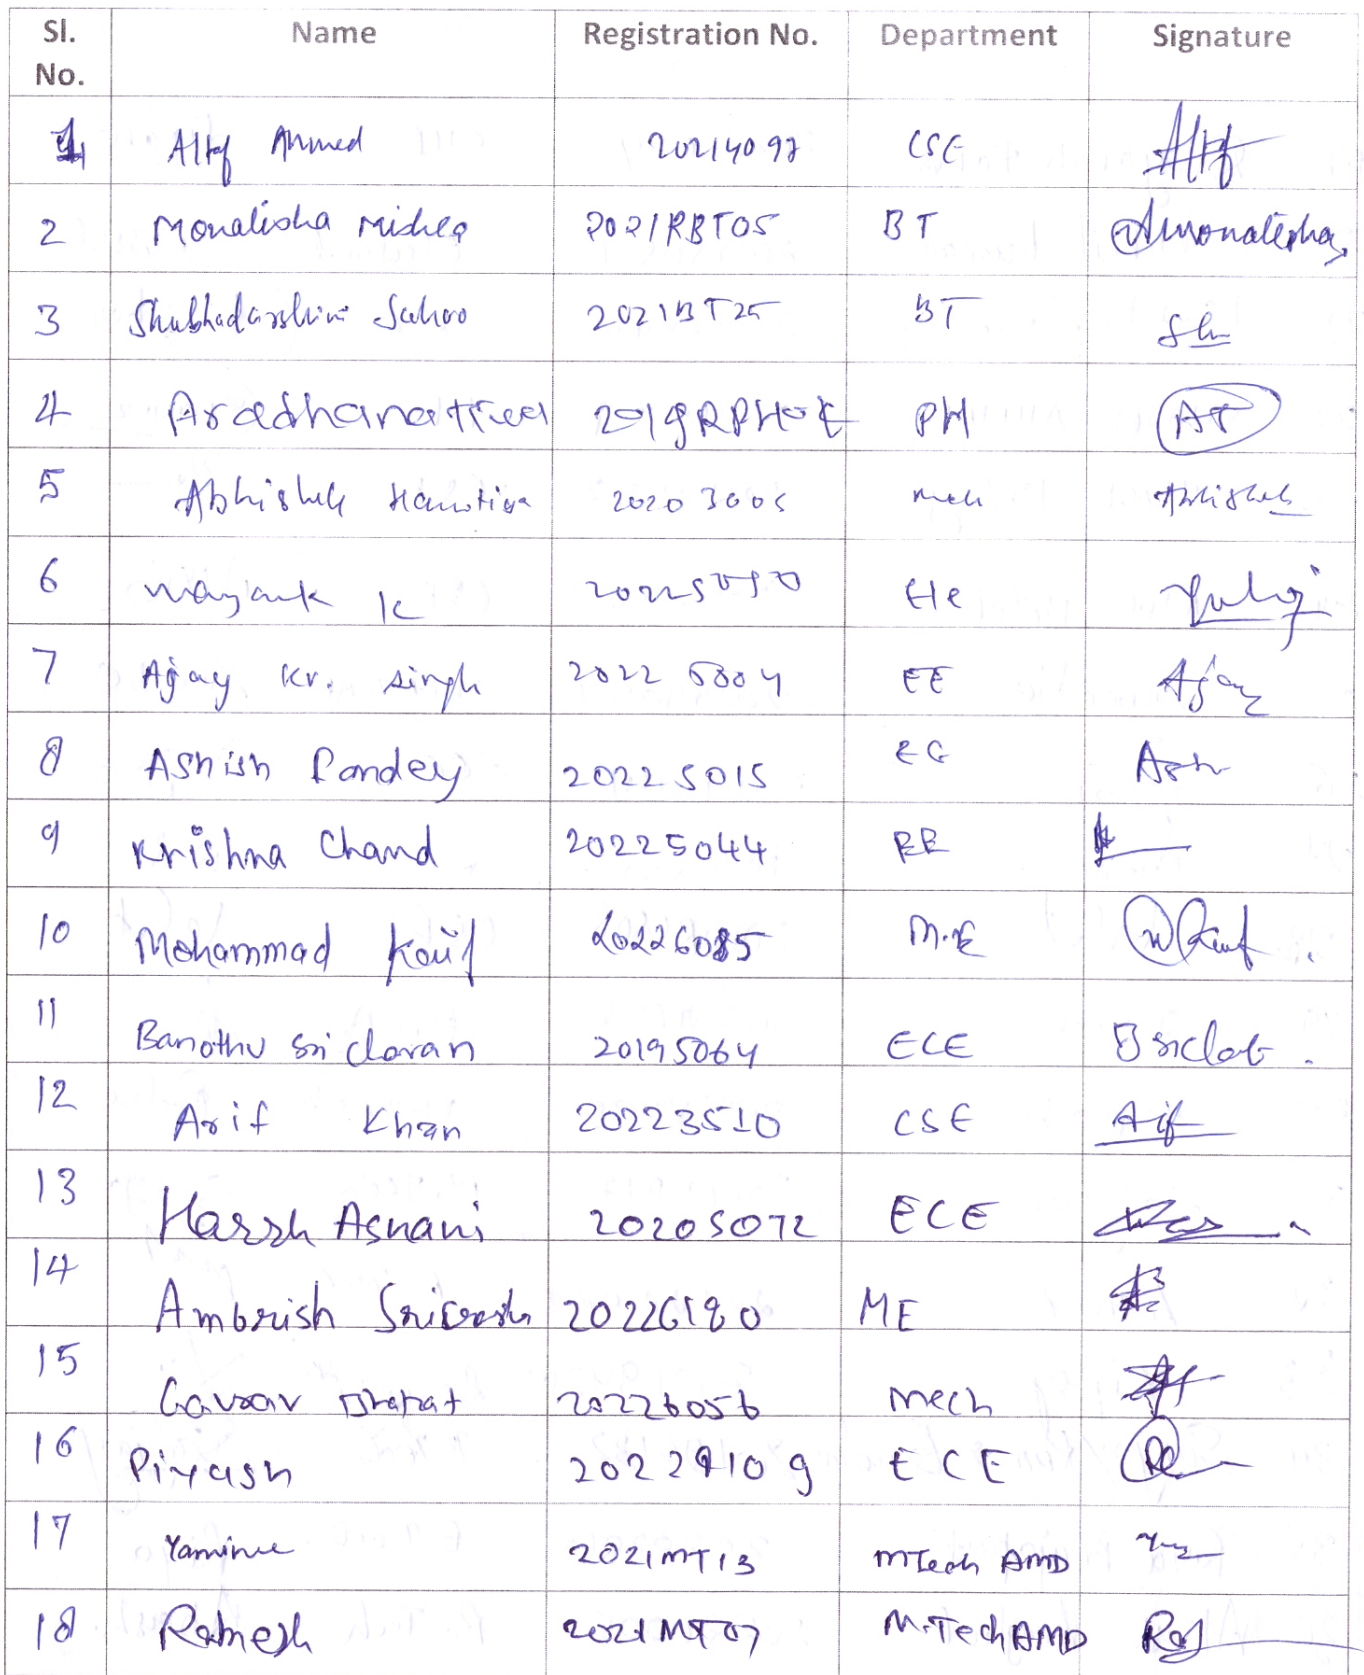 Sl. No. Name Registration No. Department Signature
1 Altaf Ahmed 20214097 CSE Altaf
2 Monalisha Mishra 2021RBT05 BT Monalisha
3 Shubhadarshini Sahoo 2021BT25 BT Sh
4 Aradhana 2019RPH0 PH AT
5 Abhishek 20203005 Mech Abhishek
6 Mayank K Ele
7 Ajay Kr. Singh 20225004 EE Ajay
8 Ashish Pandey 20225015 Ash
9 Krishna Chand 20225044 EE
10 Mohammad Kaif 20226085 M.E
11 Banothu Sri Charan 20195064 ECE
12 Arif Khan 20223510 CSE Aif
13 Harsh Asnani 20205072 ECE
14 Ambrish 20226180 ME
15 Gaurav 20226056 Mech
16 Piyash ECE
17 Yaminee 2021MT13 MTech AMD
18 Ramesh 2021MT07 M.Tech AMD